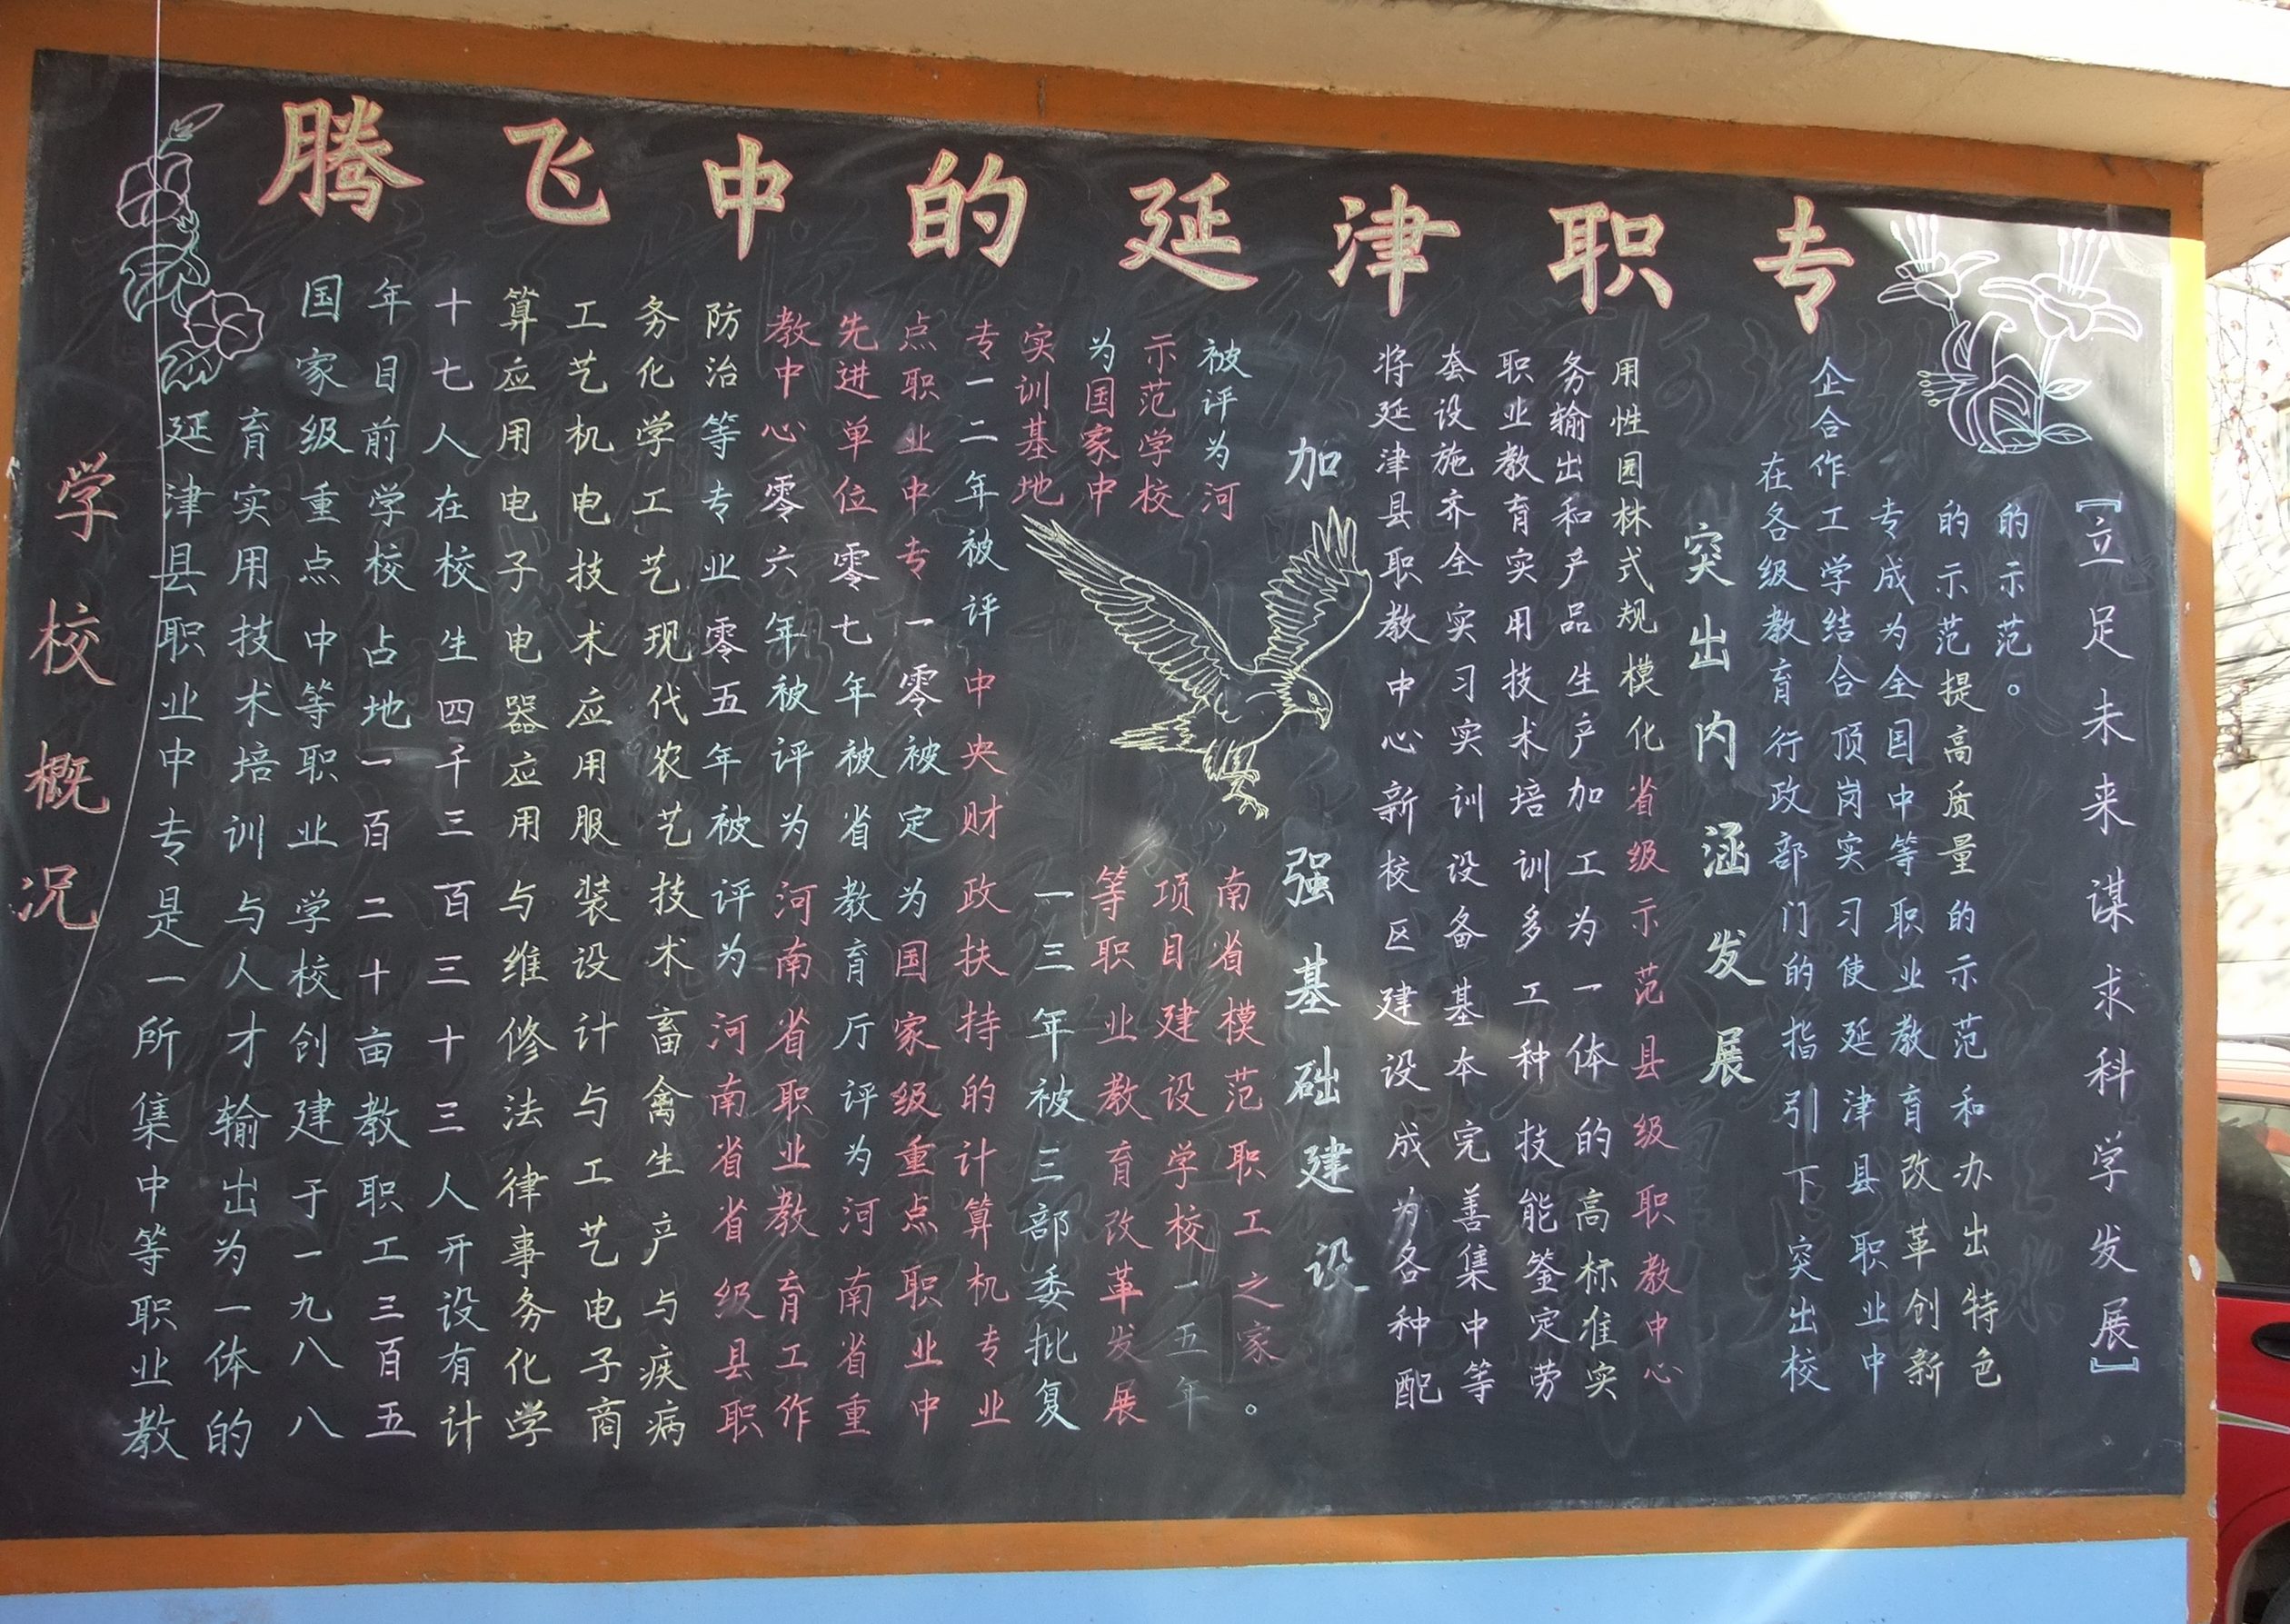 腾飞中的延津职专
学校概况
延津县职业中专是一所集中等职业教
育实用技术培训与人才输出为一体的
国家级重点中等职业学校创建于一九八八
年目前学校占地一百二十亩教职工三百五
十七人在校生四千三百三十三人开设有计
算应用电子电器应用与维修法律事务化学
工艺机电技术应用服装设计与工艺电子商
务化学工艺现代农艺技术畜禽生产与疾病
防治等专业零五年被评为河南省省级县职
教中心零六年被评为河南省职业教育工作
先进单位零七年被省教育厅评为河南省重
点职业中专一零被定为国家级重点职业中
专一二年被评中央财政扶持的计算机专业
实训基地一三年被三部委批复
为国家中等职业教育改革发展
示范学校项目建设学校一五年
被评为河南省模范职工之家。
加强基础建设
将延津县职教中心新校区建设成为各种配
套设施齐全实习实训设备基本完善集中等
职业教育实用技术培训多工种技能鉴定劳
务输出和产品生产加工为一体的高标准实
用性园林式规模化省级示范县级职教中心
突出内涵发展
在各级教育行政部门的指引下突出校
企合作工学结合顶岗实习使延津县职业中
专成为全国中等职业教育改革创新
的示范提高质量的示范和办出特色
的示范。
【立足未来谋求科学发展】